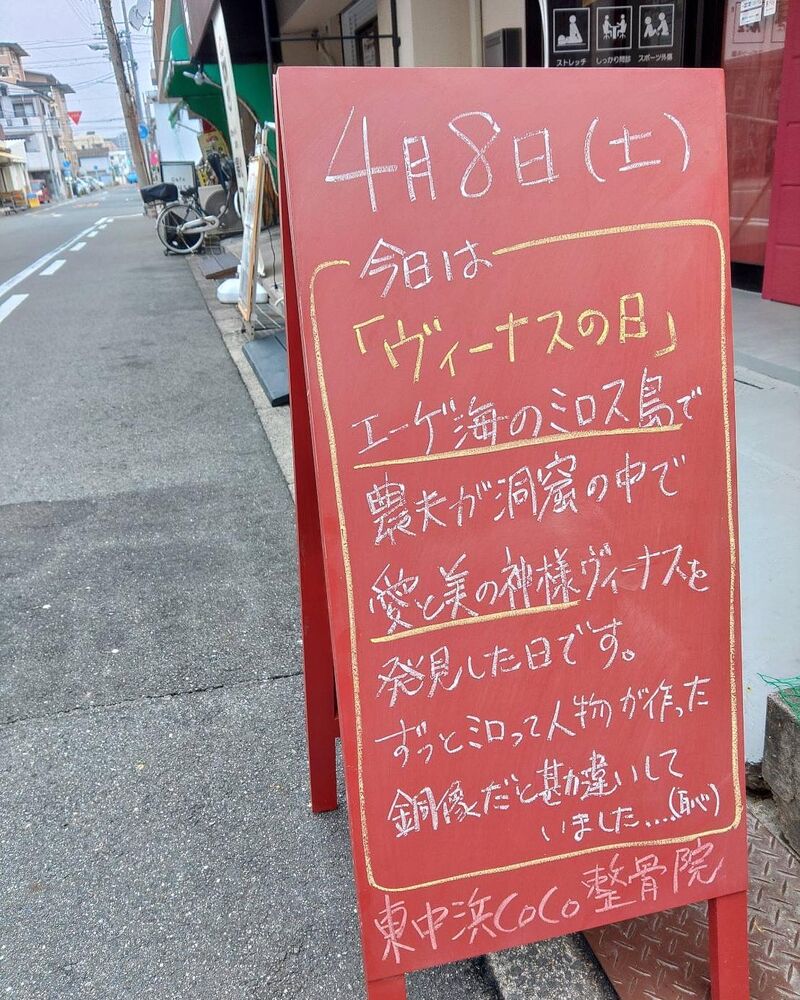 ストレッチ しっかり問診 スポーツ外傷
4月8日(土)
今日は
「ヴィーナスの日」
エーゲ海のミロス島で
農夫が洞窟の中で
愛と美の神様ヴィーナスを
発見した日です。
ずっとミロって人物が作った
銅像だと勘違いして
いました…(恥)
東中浜CoCo整骨院